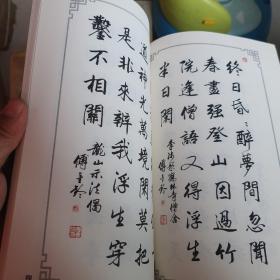 終日昏〻醉夢間忽聞
春盡强登山因過竹
院逢僧話又得浮生
半日閑
李涉題鶴林寺僧舍
道神光萬境閑莫把
是非來辨我浮生穿
鑿不相關
龍山示法偈